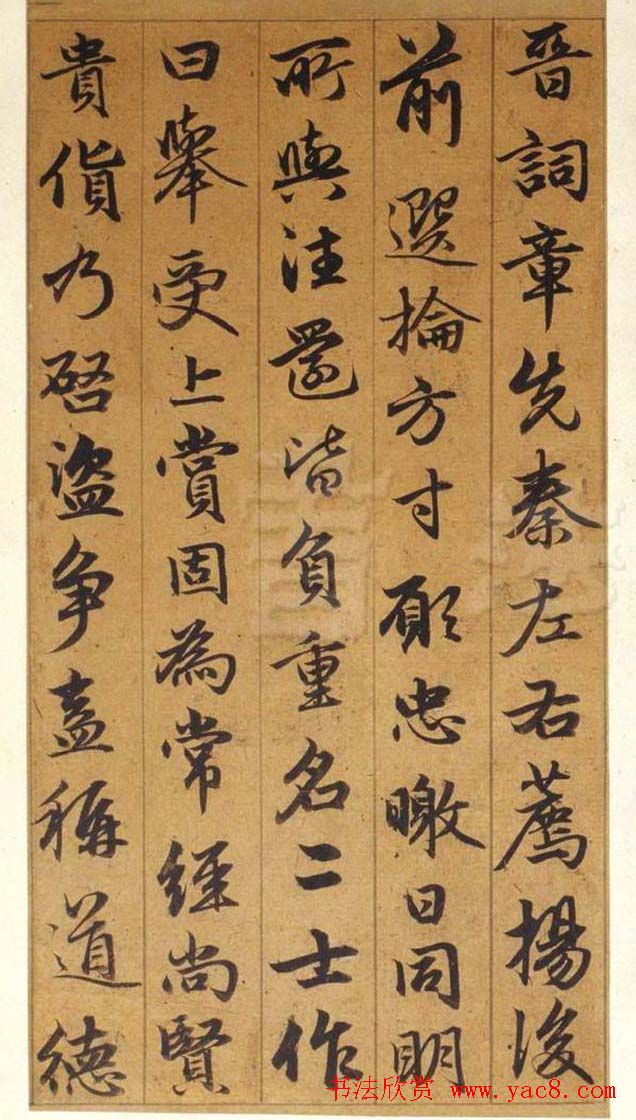 晉詞章先秦左右薦揚後
前選掄方寸願忠暾日同明
所與注還皆負重名二士作
曰舉受上賞固為常經尚賢
貴貨乃啓盜争盍稱道德
书法欣赏 www.yac8.com